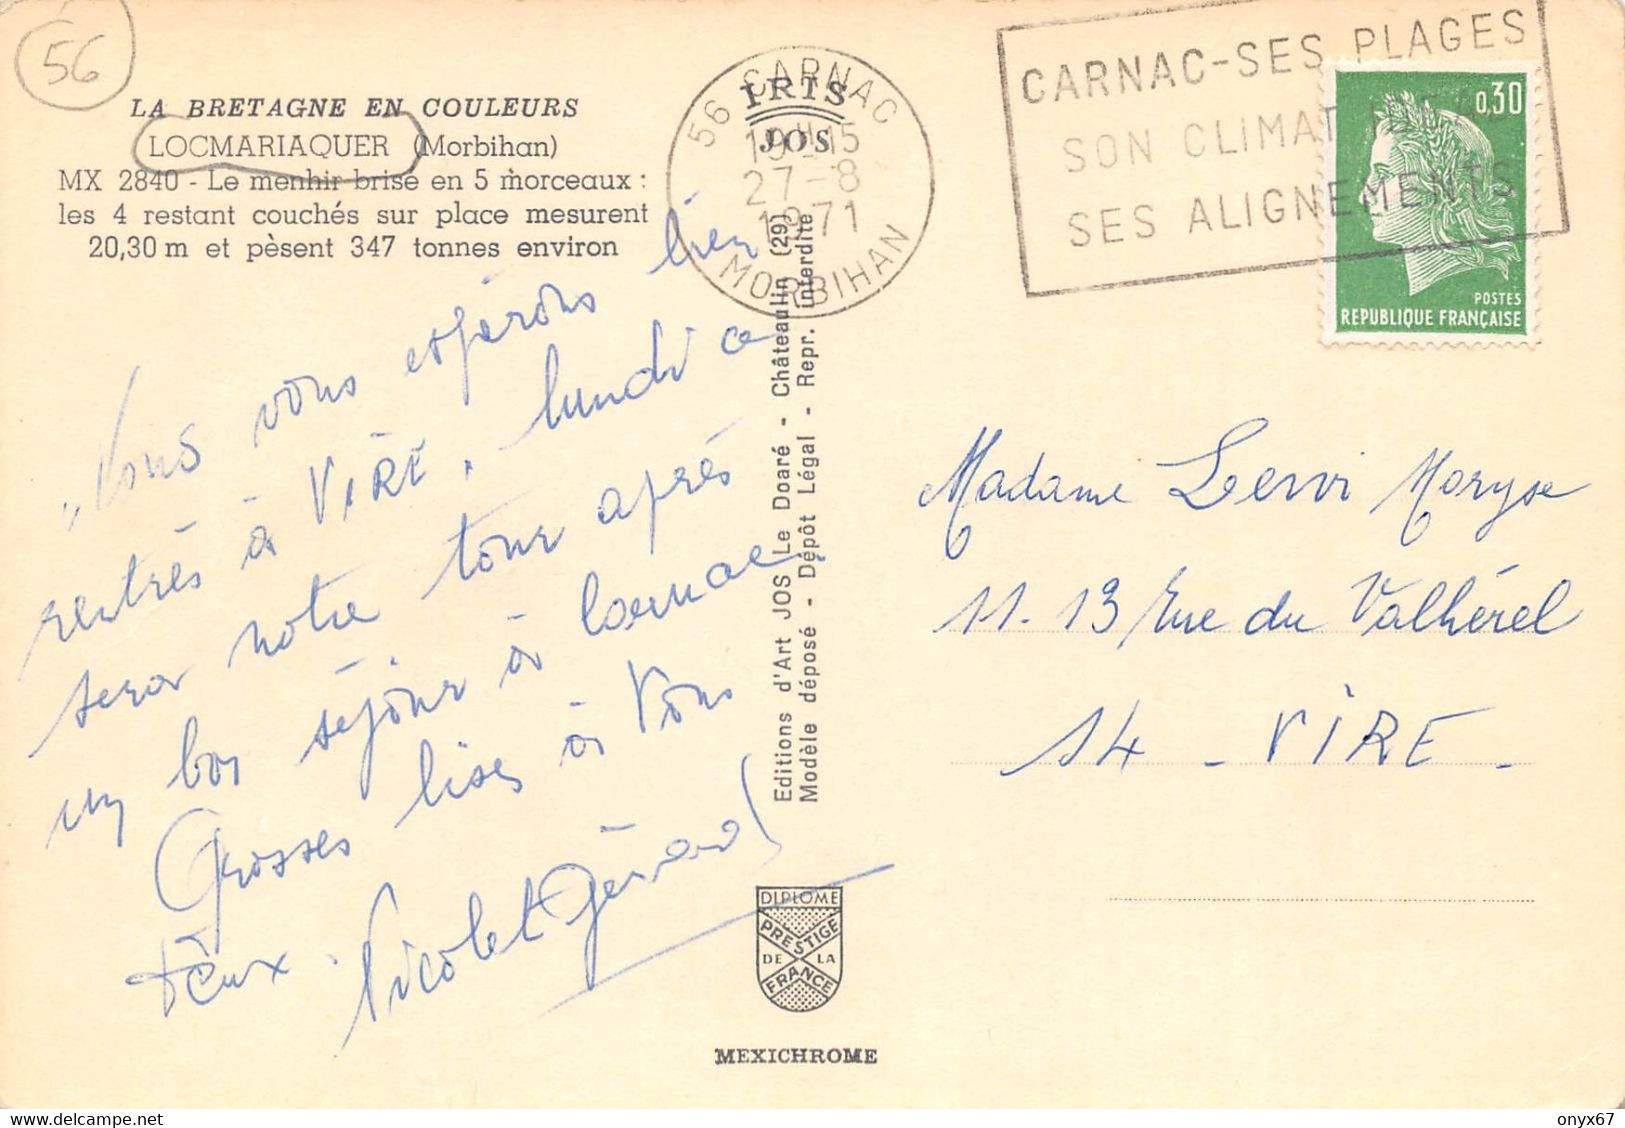 56
LA BRETAGNE EN COULEURS
LOCMARIAQUER (Morbihan)
MX 2840 - Le menhir brisé en 5 morceaux :
les 4 restant couchés sur place mesurent
20,30 m et pèsent 347 tonnes environ
IRIS
JOS
56 CARNAC
19H15
27-8
1971
MORBIHAN
CARNAC-SES PLAGES
SON CLIMAT
SES ALIGNEMENTS
0,30
POSTES
REPUBLIQUE FRANÇAISE
Nous vous espérons bien
rentrés à VIRE, lundi ce
sera notre tour après
un bon séjour à Carnac.
Grosses bises à Vous
deux. Nicole et Gérard
Editions d'Art JOS Le Doaré - Châteaulin (29)
Modèle déposé - Dépôt Légal - Repr. interdite
Madame Maryse
11.13 Rue du Valhérel
14 - VIRE -
DIPLOME
PRESTIGE
DE LA
FRANCE
MEXICHROME
onyx67